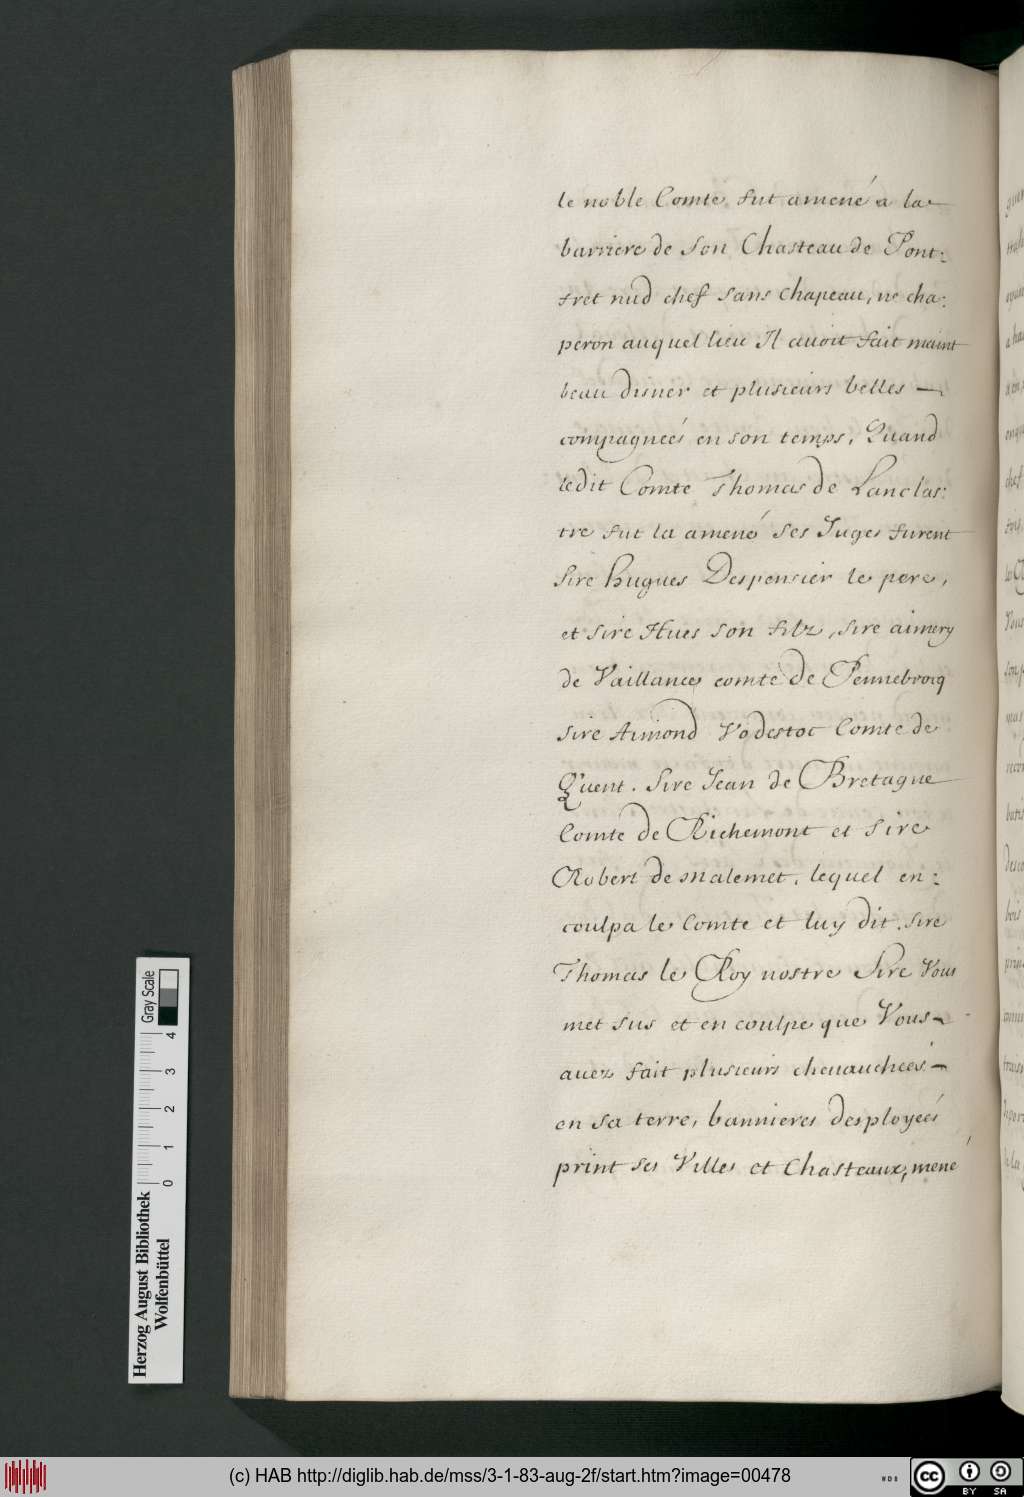 le noble Comte fut amené a la
barriere de Son Chasteau de Pont:
fret nud chef sans chapeau, ne cha:
peron auquel lieu Il avoit fait maint
beau disner et plusieurs belles —
compagneés en son temps, Quand
ledit Comte Thomas de Lanclas:
tre fut la amené ses Juges furent
Sire hugues Despensier le pere,
et sire Hues son filz, sire aimery
de Vaillance comte de Pennebrocq
sire Aimond Vodestoc Comte de
Quent. Sire Jean de Bretagne
Comte de Richemont et sire
Robert de malemet, lequel en:
coulpa le Comte et luy dit. sire
Thomas le Roy nostre Sire Vous
met sus et en coulpe que Vous
auez fait plusieurs cheuaucheés
en sa terre, bannieres desployeés
print ses Villes et Chasteaux, mené
Gray Scale
4
3
2
1
0
Herzog August Bibliothek
Wolfenbüttel
(c) HAB http://diglib.hab.de/mss/3-1-83-aug-2f/start.htm?image=00478
WDB
cc
BY SA